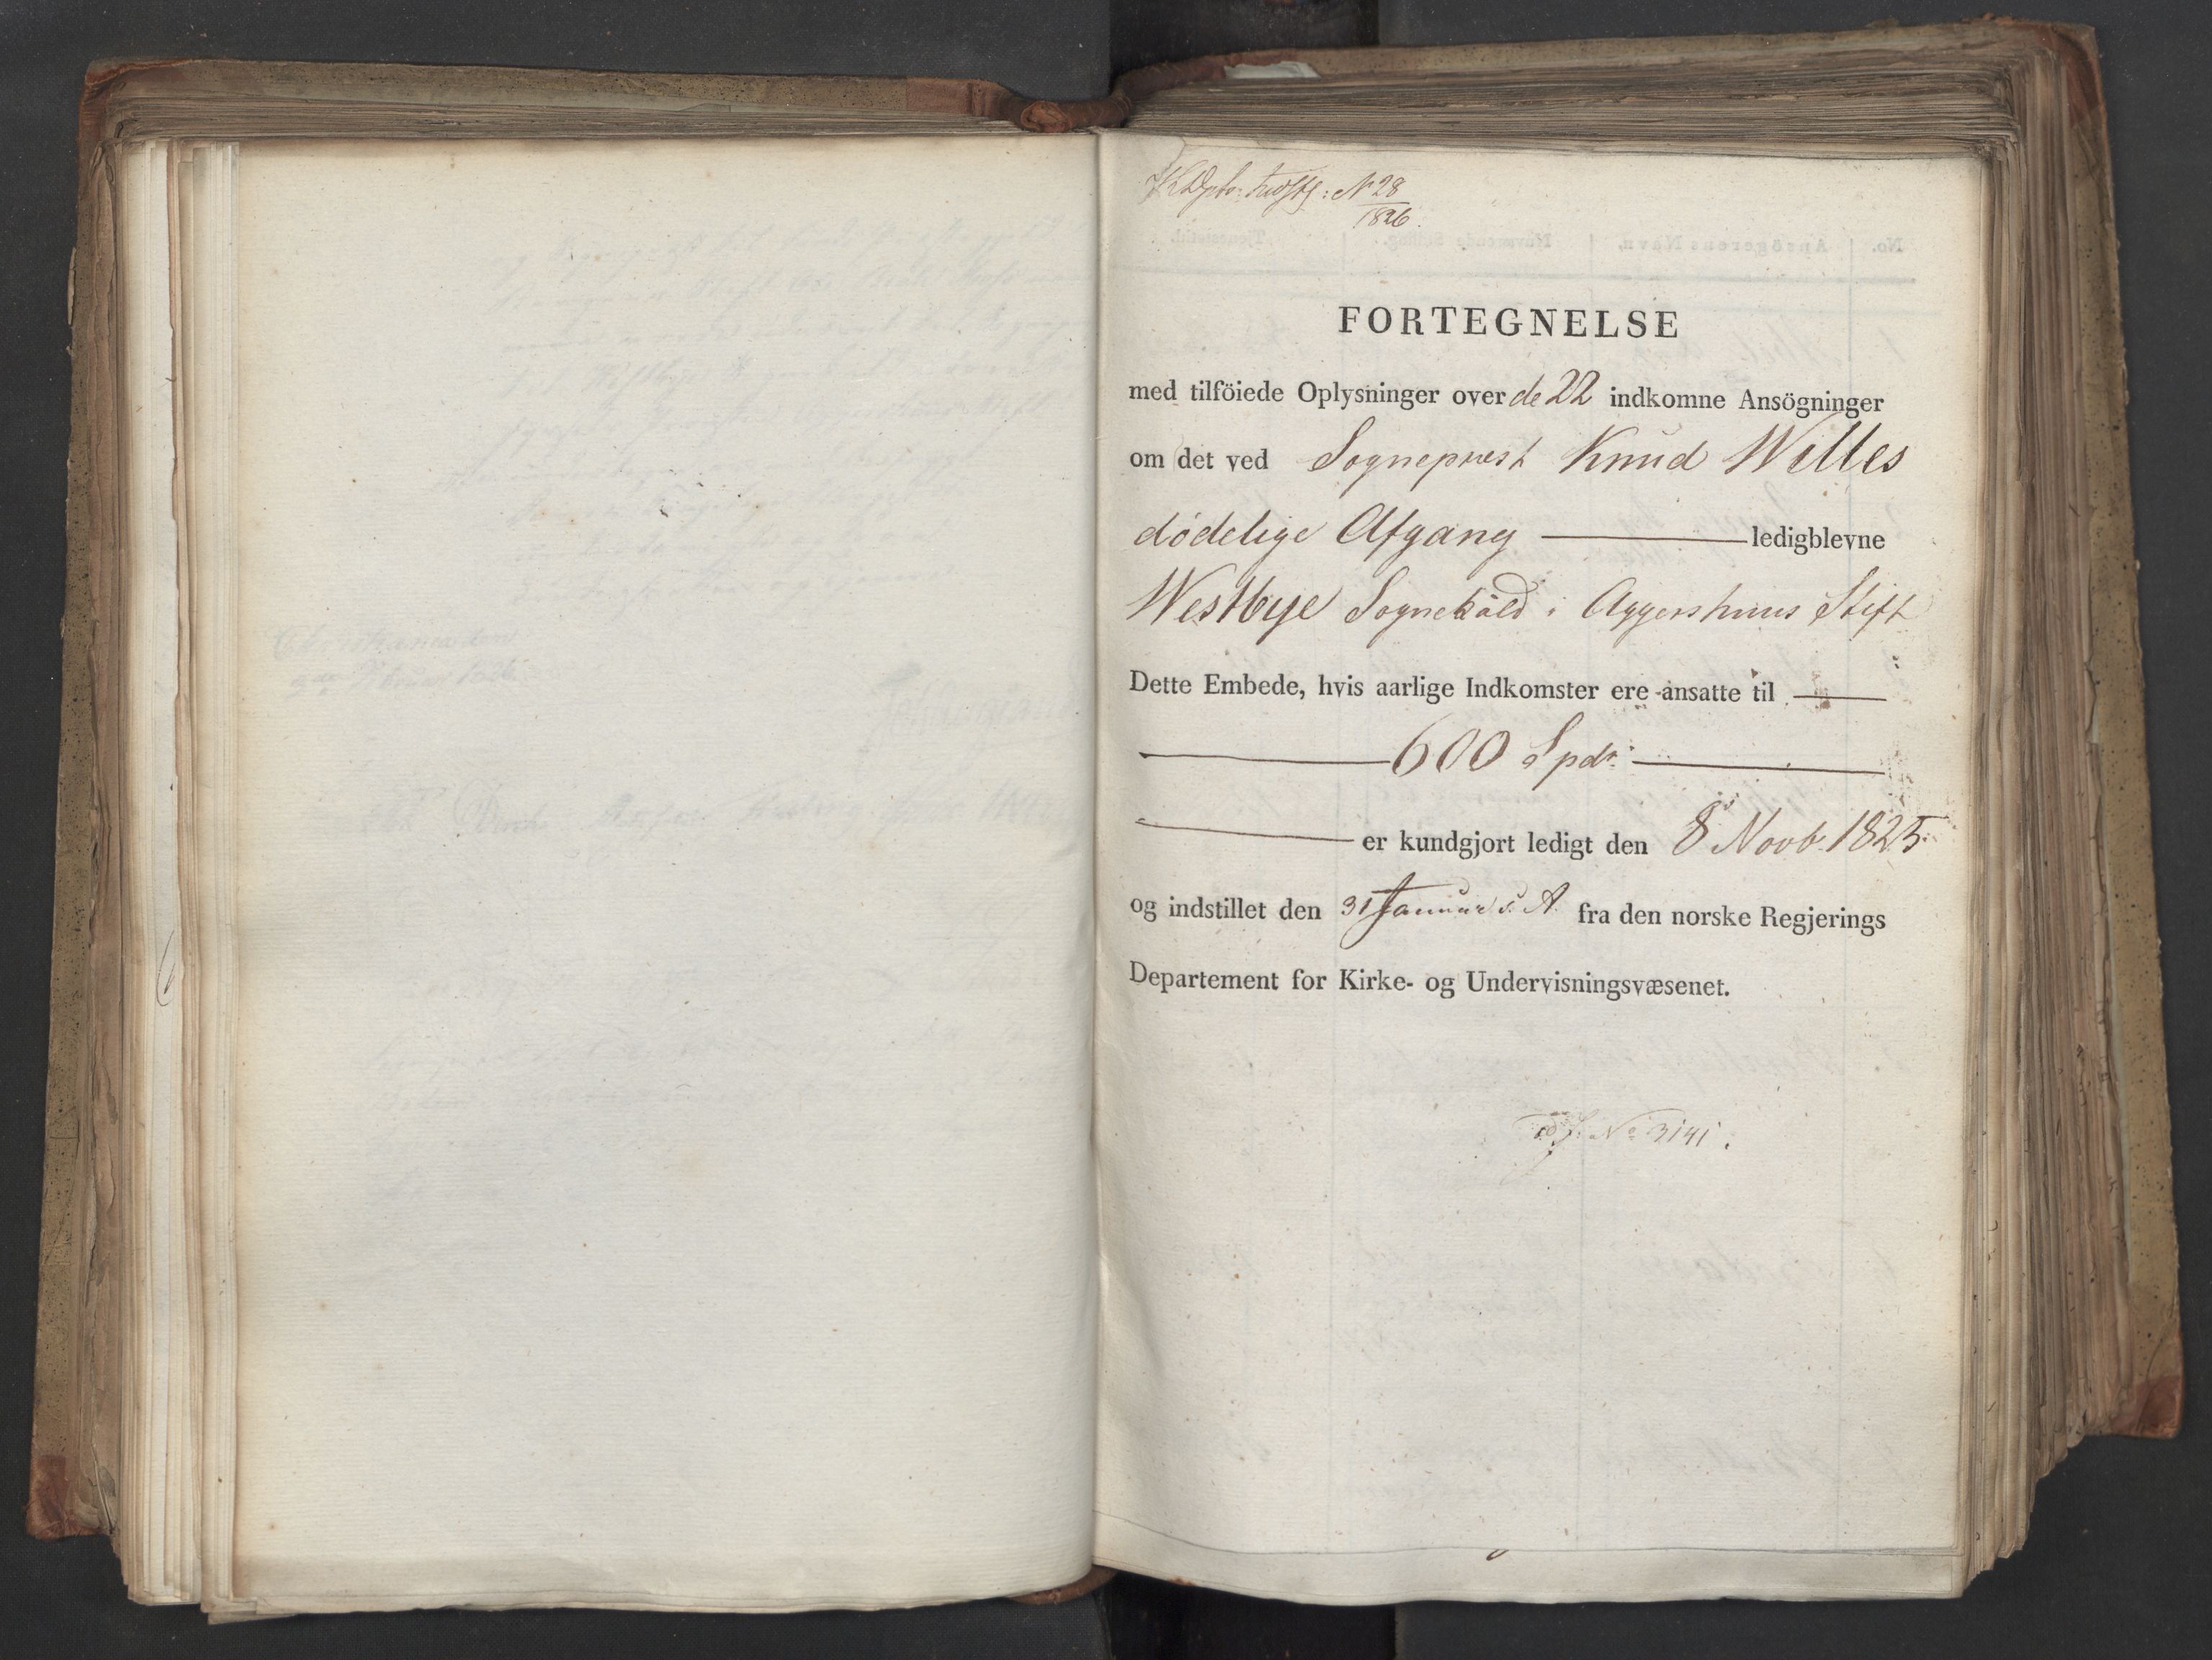 K Dpts: Indst: N 28
1826.
FORTEGNELSE
med tilföiede Oplysninger over de 22 indkomne Ansögninger
om det ved Sogneprest Knud Willes
dødelige Afgang ledigblevne
Westbye Sognekald i Aggershuus Stift
Dette Embede, hvis aarlige Indkomster ere ansatte til
600 Spdr.
er kundgjort ledigt den 8 Novb. 1825.
og indstillet den 31 Januar d. A. fra den norske Regjerings
Departement for Kirke- og Undervisningsvæsenet.
No 3141.